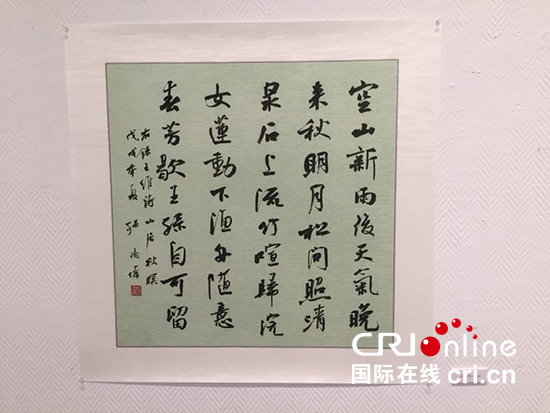 空山新雨後天氣晚
来秋明月松间照清
泉石上流竹喧歸浣
女蓮動下渔舟随意
春芳歇王孫自可留
右録王维诗山居秋暝
戊戌夏
CRI online
国际在线 cri.cn